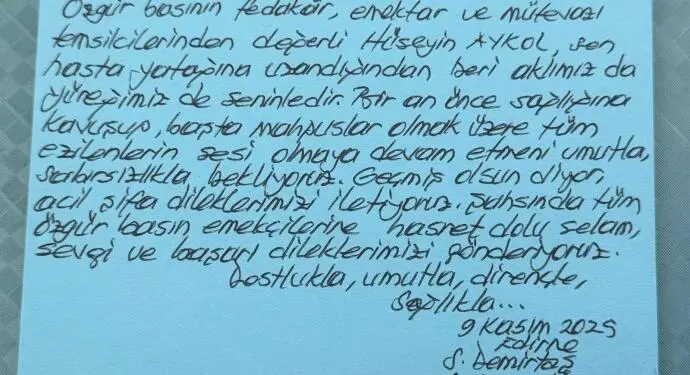 Özgür basının fedakâr, emektar ve mütevazı
temsilcilerinden değerli Hüseyin AYKOL, sen
hasta yatağına uzandığından beri aklımız da
yüreğimiz de seninledir. Bir an önce sağlığına
kavuşup, başta mahpuslar olmak üzere tüm
ezilenlerin sesi olmaya devam etmeni umutla,
sabırsızlıkla bekliyoruz. Geçmiş olsun diyor,
acil şifa dileklerimizi iletiyoruz. Şahsında tüm
özgür basın emekçilerine hasret dolu selam,
sevgi ve başarı dileklerimizi gönderiyoruz.
Dostlukla, umutla, dirençle,
Sağlıkla...
9 Kasım 2025
Edirne
S. Demirtaş